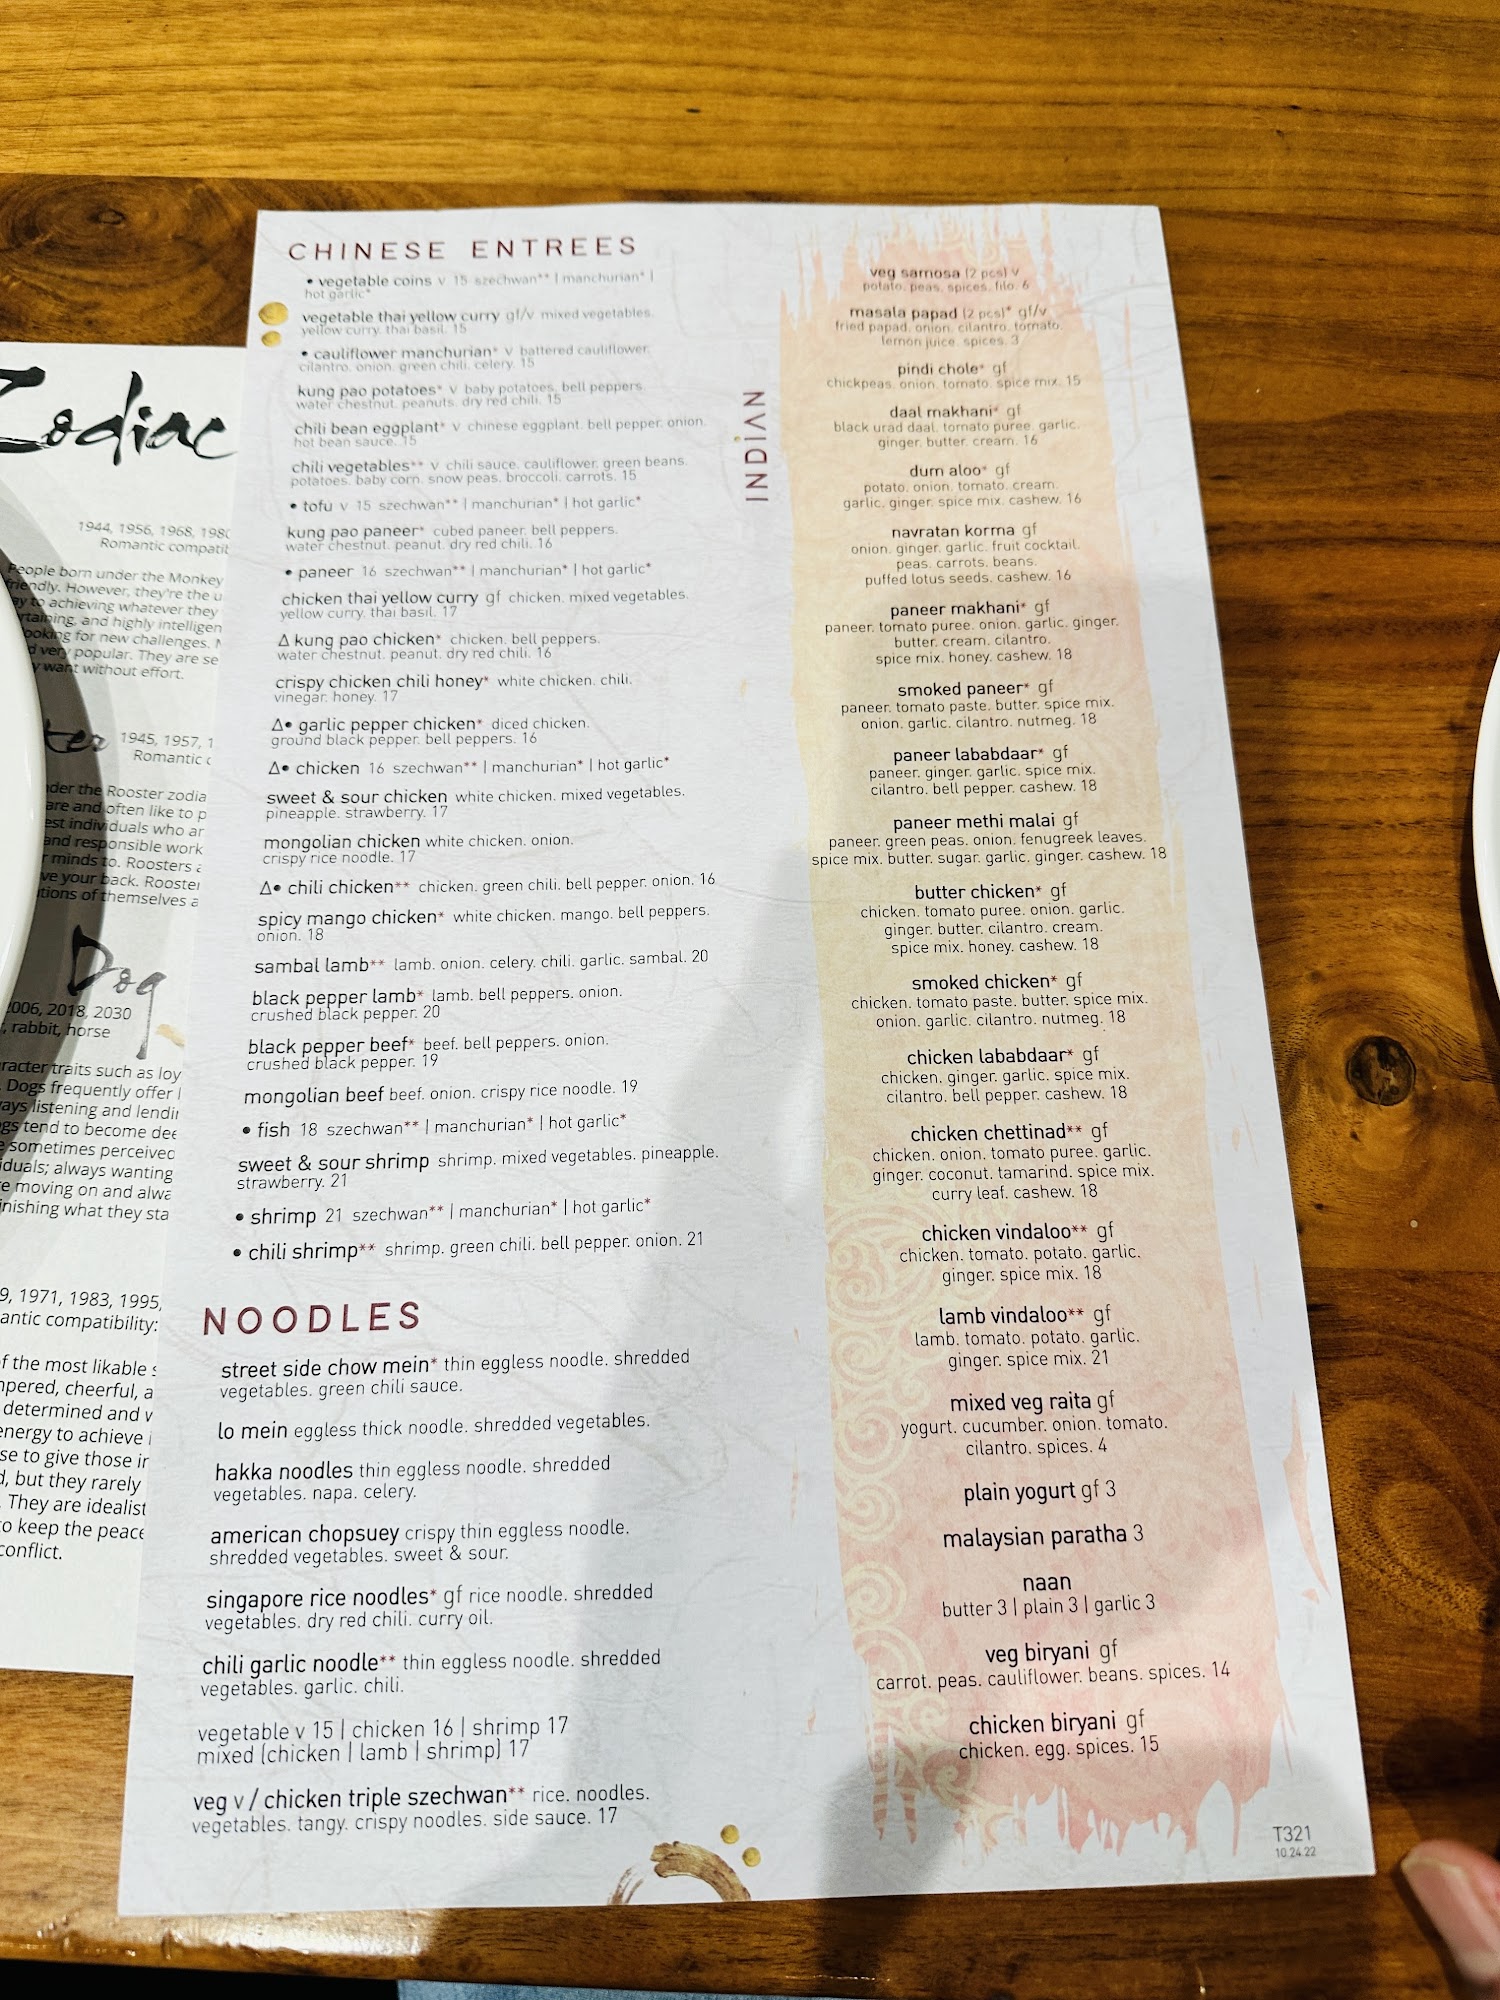 CHINESE ENTREES
• vegetable coins v 15 szechwan** | manchurian* |
hot garlic*
vegetable thai yellow curry gf/v mixed vegetables.
yellow curry. thai basil. 15
• cauliflower manchurian* v battered cauliflower.
cilantro. onion. green chili. celery. 15
kung pao potatoes* v baby potatoes. bell peppers.
water chestnut. peanuts. dry red chili. 15
chili bean eggplant* v chinese eggplant. bell pepper. onion.
hot bean sauce. 15
chili vegetables** v chili sauce. cauliflower. green beans.
potatoes. baby corn. snow peas. broccoli. carrots. 15
• tofu v 15 szechwan** | manchurian* | hot garlic*
kung pao paneer* cubed paneer. bell peppers.
water chestnut. peanut. dry red chili. 16
• paneer 16 szechwan** | manchurian* | hot garlic*
chicken thai yellow curry gf chicken. mixed vegetables.
yellow curry. thai basil. 17
Δ kung pao chicken* chicken. bell peppers.
water chestnut. peanut. dry red chili. 16
crispy chicken chili honey* white chicken. chili.
vinegar. honey. 17
Δ• garlic pepper chicken* diced chicken.
ground black pepper. bell peppers. 16
Δ• chicken 16 szechwan** | manchurian* | hot garlic*
sweet & sour chicken white chicken. mixed vegetables.
pineapple. strawberry. 17
mongolian chicken white chicken. onion.
crispy rice noodle. 17
Δ• chili chicken** chicken. green chili. bell pepper. onion. 16
spicy mango chicken* white chicken. mango. bell peppers.
onion. 18
sambal lamb** lamb. onion. celery. chili. garlic. sambal. 20
black pepper lamb* lamb. bell peppers. onion.
crushed black pepper. 20
black pepper beef* beef. bell peppers. onion.
crushed black pepper. 19
mongolian beef beef. onion. crispy rice noodle. 19
• fish 18 szechwan** | manchurian* | hot garlic*
sweet & sour shrimp shrimp. mixed vegetables. pineapple.
strawberry. 21
• shrimp 21 szechwan** | manchurian* | hot garlic*
• chili shrimp** shrimp. green chili. bell pepper. onion. 21
NOODLES
street side chow mein* thin eggless noodle. shredded
vegetables. green chili sauce.
lo mein eggless thick noodle. shredded vegetables.
hakka noodles thin eggless noodle. shredded
vegetables. napa. celery.
american chopsuey crispy thin eggless noodle.
shredded vegetables. sweet & sour.
singapore rice noodles* gf rice noodle. shredded
vegetables. dry red chili. curry oil.
chili garlic noodle** thin eggless noodle. shredded
vegetables. garlic. chili.
vegetable v 15 | chicken 16 | shrimp 17
mixed (chicken | lamb | shrimp) 17
veg v / chicken triple szechwan** rice. noodles.
vegetables. tangy. crispy noodles. side sauce. 17
INDIAN
veg samosa (2 pcs) v
potato. peas. spices. filo. 6
masala papad (2 pcs)* gf/v
fried papad. onion. cilantro. tomato.
lemon juice. spices. 3
pindi chole* gf
chickpeas. onion. tomato. spice mix. 15
daal makhani* gf
black urad daal. tomato puree. garlic.
ginger. butter. cream. 16
dum aloo* gf
potato. onion. tomato. cream.
garlic. ginger. spice mix. cashew. 16
navratan korma gf
onion. ginger. garlic. fruit cocktail.
peas. carrots. beans.
puffed lotus seeds. cashew. 16
paneer makhani* gf
paneer. tomato puree. onion. garlic. ginger.
butter. cream. cilantro.
spice mix. honey. cashew. 18
smoked paneer* gf
paneer. tomato paste. butter. spice mix.
onion. garlic. cilantro. nutmeg. 18
paneer lababdaar* gf
paneer. ginger. garlic. spice mix.
cilantro. bell pepper. cashew. 18
paneer methi malai gf
paneer. green peas. onion. fenugreek leaves.
spice mix. butter. sugar. garlic. ginger. cashew. 18
butter chicken* gf
chicken. tomato puree. onion. garlic.
ginger. butter. cilantro. cream.
spice mix. honey. cashew. 18
smoked chicken* gf
chicken. tomato paste. butter. spice mix.
onion. garlic. cilantro. nutmeg. 18
chicken lababdaar* gf
chicken. ginger. garlic. spice mix.
cilantro. bell pepper. cashew. 18
chicken chettinad** gf
chicken. onion. tomato puree. garlic.
ginger. coconut. tamarind. spice mix.
curry leaf. cashew. 18
chicken vindaloo** gf
chicken. tomato. potato. garlic.
ginger. spice mix. 18
lamb vindaloo** gf
lamb. tomato. potato. garlic.
ginger. spice mix. 21
mixed veg raita gf
yogurt. cucumber. onion. tomato.
cilantro. spices. 4
plain yogurt gf 3
malaysian paratha 3
naan
butter 3 | plain 3 | garlic 3
veg biryani gf
carrot. peas. cauliflower. beans. spices. 14
chicken biryani gf
chicken. egg. spices. 15
T321
10.24.22
Zodiac
1944, 1956, 1968, 1980
Romantic
People born under the Monkey
friendly. However, they're the
to achieving whatever they
and highly
looking for new challenges.
very popular. They are
want without effort.
1945, 1957,
Romantic
under the Rooster
are and often like to
individuals who
and responsible work
minds to. Roosters
your back.
of themselves
Dog
2006, 2018, 2030
rabbit, horse
traits such as
Dogs frequently offer
listening and
tend to become
sometimes perceived
always wanting
moving on and
finishing what they
1971, 1983, 1995,
compatibility:
of the most likable
cheerful,
determined and
energy to achieve
to give those
but they rarely
They are
to keep the peace
conflict.